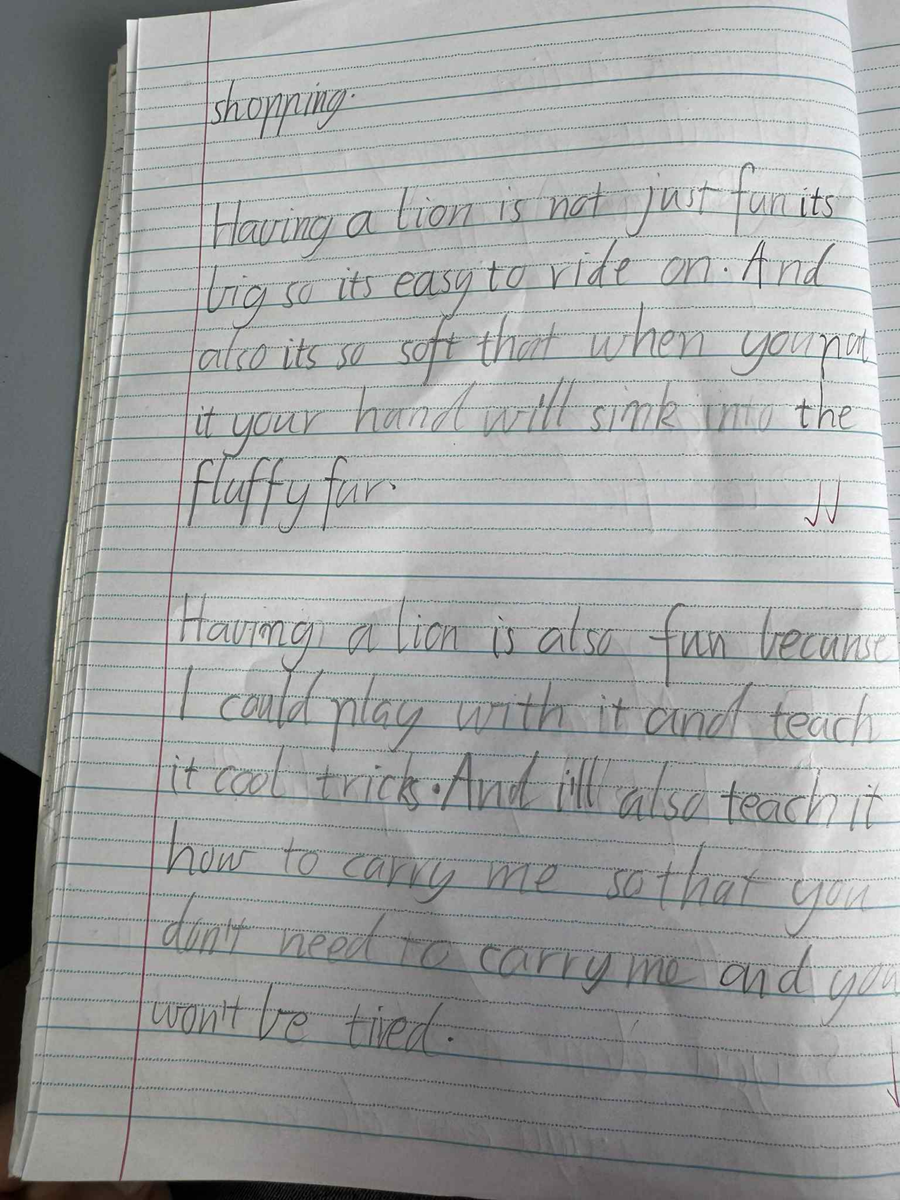 shopping.
Having a lion is not just fun its
big so its easy to ride on. And
also its so soft that when you pat
it your hand will sink into the
fluffy fur.
Having a lion is also fun becuase
I could play with it and teach
it cool tricks. And i'll also teach it
how to carry me so that you
don't need to carry me and you
won't be tired.